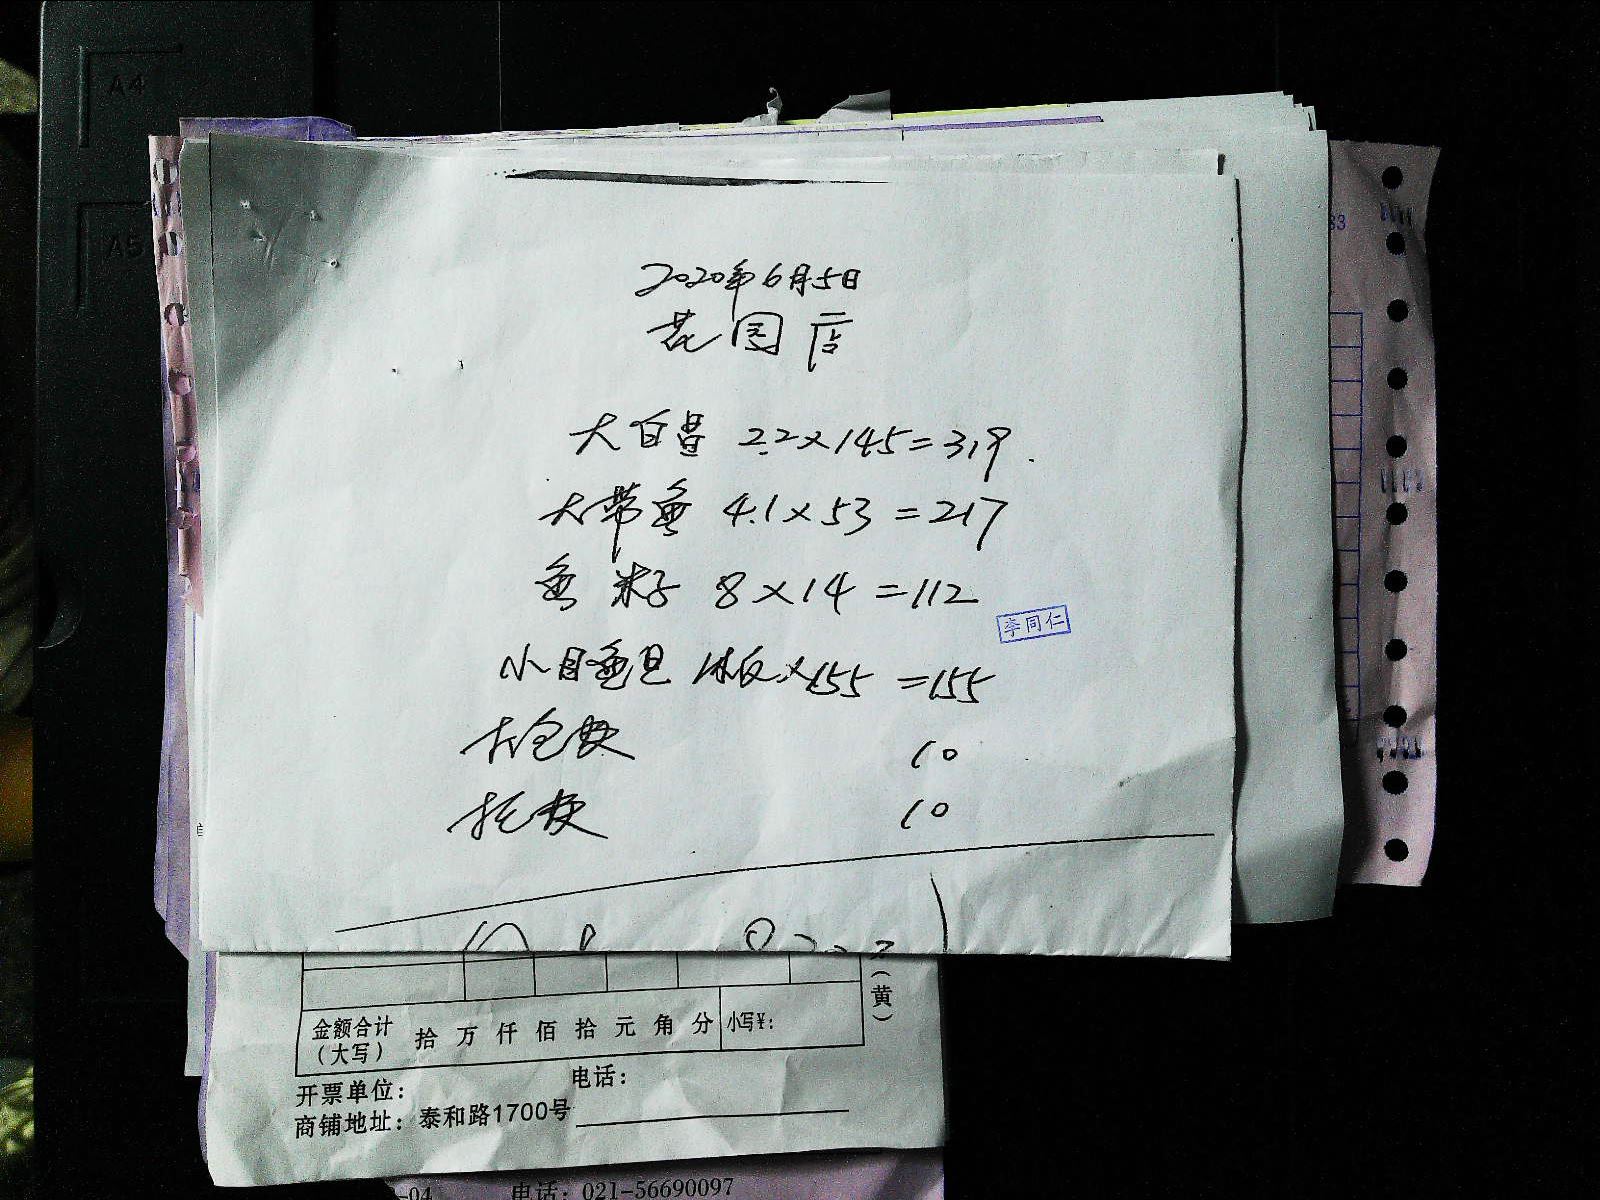 A4
A5
2020年6月5日
花园店
大白昌 2.2×145=319
大带鱼 4.1×53=217
鱼米子 8×14=112
李同仁
小目鱼旦 1板×155=155
大包费 10
托费 10
(黄)
金额合计
(大写)
拾 万 仟 佰 拾 元 角 分
小写¥:
开票单位:
电话:
商铺地址: 泰和路1700号
-04 电话: 021-56690097